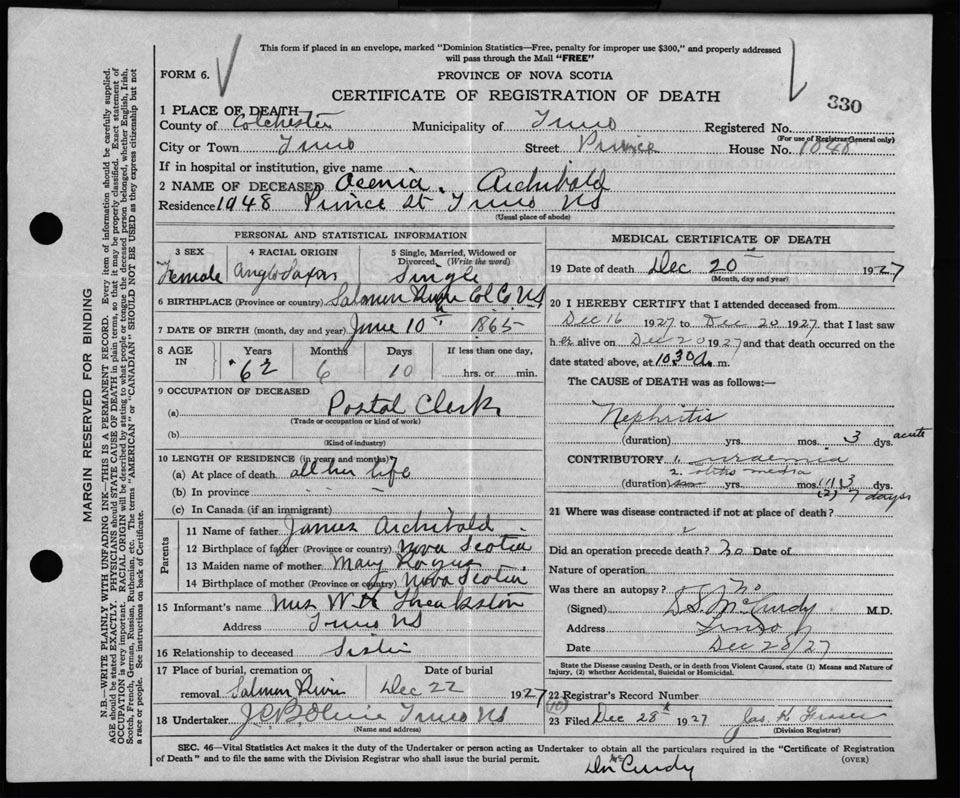 This form if placed in an envelope, marked "Dominion Statistics—Free, penalty for improper use $300," and properly addressed
will pass through the Mail "FREE"
FORM 6.
PROVINCE OF NOVA SCOTIA
CERTIFICATE OF REGISTRATION OF DEATH
330
1 PLACE OF DEATH—
County of Colchester Municipality of Truro Registered No.
(For use of Registrar General only)
City or Town Truro Street Prince House No. 1048
If in hospital or institution, give name
2 NAME OF DECEASED Acenia Archibald
Residence 1048 Prince St Truro NS
(Usual place of abode)
PERSONAL AND STATISTICAL INFORMATION
3 SEX 4 RACIAL ORIGIN 5 Single, Married, Widowed or
Divorced. (Write the word)
Female Anglo Saxon Single
6 BIRTHPLACE (Province or country) Salmon River Col Co NS
7 DATE OF BIRTH (month, day and year) June 10th 1865
8 AGE IN Years Months Days If less than one day,
62 6 10 hrs. or min.
9 OCCUPATION OF DECEASED
(a) Postal Clerk
(Trade or occupation or kind of work)
(b)
(Kind of industry)
10 LENGTH OF RESIDENCE (in years and months)
(a) At place of death all her life
(b) In province
(c) In Canada (if an immigrant)
Parents
11 Name of father James Archibald
12 Birthplace of father (Province or country) Nova Scotia
13 Maiden name of mother Mary
14 Birthplace of mother (Province or country) Nova Scotia
15 Informant's name Mrs W H Threakston
Address Truro NS
16 Relationship to deceased Sister
17 Place of burial, cremation or Date of burial
removal Salmon River Dec 22 1927
18 Undertaker Truro NS
(Name and address)
MEDICAL CERTIFICATE OF DEATH
19 Date of death Dec 20th 1927
(Month, day and year)
20 I HEREBY CERTIFY that I attended deceased from
Dec 16 1927 to Dec 20 1927 that I last saw
her alive on Dec 20 1927 and that death occurred on the
date stated above, at 1030 a. m.
The CAUSE of DEATH was as follows:—
Nephritis
(duration) yrs. mos. 3 dys. acute
CONTRIBUTORY 1. uraemia
2. otitis media
(duration) yrs. mos. (1) 3 dys.
(2) 7 days
21 Where was disease contracted if not at place of death?
Did an operation precede death? no Date of
Nature of operation
Was there an autopsy? No
(Signed) D S McCurdy M.D.
Address Truro
Date Dec 20/27
State the Disease causing Death, or in death from Violent Causes, state (1) Means and Nature of
Injury, (2) whether Accidental, Suicidal or Homicidal.
22 Registrar's Record Number
23 Filed Dec 28th 1927 Jas. K. Fraser
(Division Registrar)
SEC. 46—Vital Statistics Act makes it the duty of the Undertaker or person acting as Undertaker to obtain all the particulars required in the "Certificate of Registration
of Death" and to file the same with the Division Registrar who shall issue the burial permit.
(OVER)
McCurdy
MARGIN RESERVED FOR BINDING
N.B.—WRITE PLAINLY WITH UNFADING INK—THIS IS A PERMANENT RECORD. Every item of information should be carefully supplied.
AGE should be stated EXACTLY. PHYSICIANS should STATE CAUSE OF DEATH in plain terms, so that it may be properly classified. Exact statement of
OCCUPATION is very important. RACIAL ORIGIN will be described by stating to what people or tongue the deceased person belonged, whether English, Irish,
Scotch, French, German, Russian, Ruthenian, etc. The terms "AMERICAN" or "CANADIAN" SHOULD NOT BE USED as they express citizenship but not
a race or people. See instructions on back of Certificate.